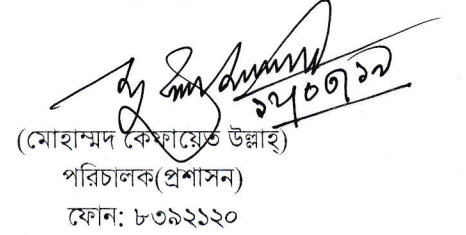 (মোহাম্মদ কেফায়েত উল্লাহ্)
পরিচালক(প্রশাসন)
ফোন: ৮৩৯২১২০